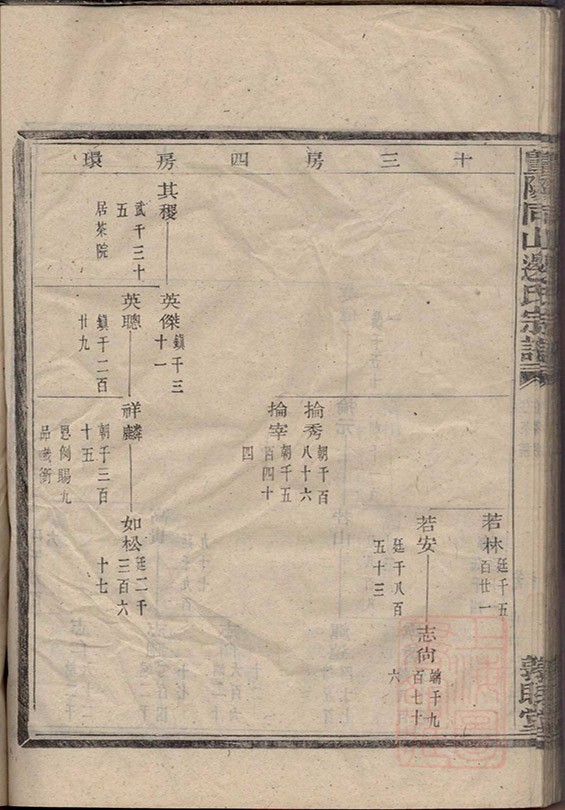 暨陽同山邊氏宗譜
義門堂
十三房四房環
若林
廷千五
百廿一
若安
廷千八百
五十三
志尙
端千九
百七十
六
掄秀
朝千百
八十六
掄宰
朝千五
百四十
四
其稷
貳千三十
五
居茶院
英傑
鎮千三
十一
英聰
鎮千一百
廿九
祥麟
朝千三百
十五
恩例賜九
品職銜
如松
廷二千
三百六
十七